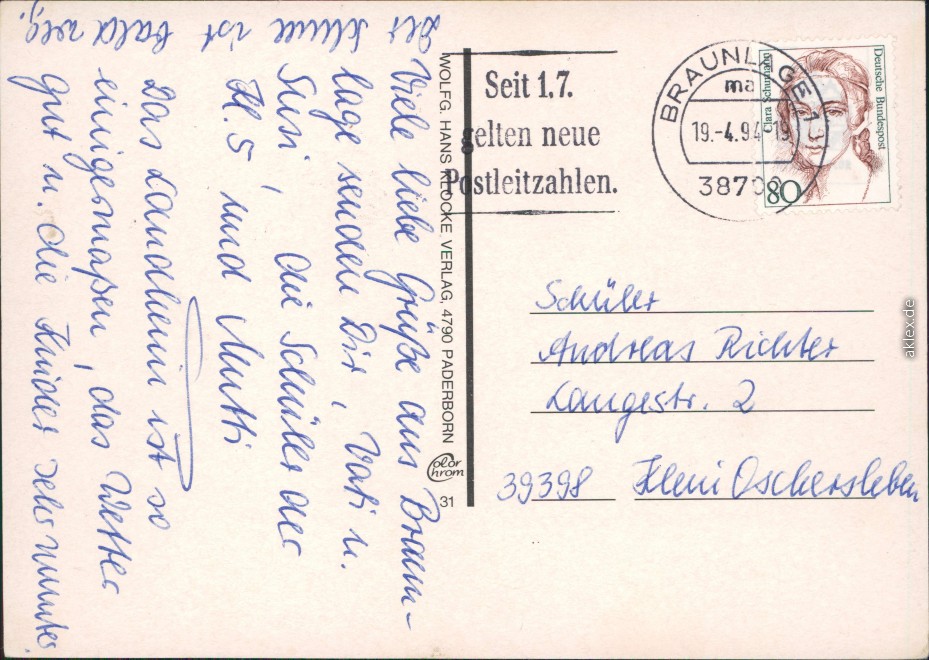 Viele liebe Grüße aus Braun-
lage senden Dir, Vati u.
Susi, die Schüler der
Kl. 5 und Mutti
Das Landheim ist so
einigermaßen, das Wetter
gut u. die Kinder sehr munter.
Der Schnee ist bald weg.
WOLFG. HANS KLOCKE VERLAG, 4790 PADERBORN
Color
Chrom
31
Seit 1.7.
gelten neue
Postleitzahlen.
BRAUNLAGE 1
ma
19.-4.94-19
38700
Deutsche Bundespost
Clara Schumann
80
Schüler
Andreas Richter
Langestr. 2
39398 Klein Oschersleben
aklex.de